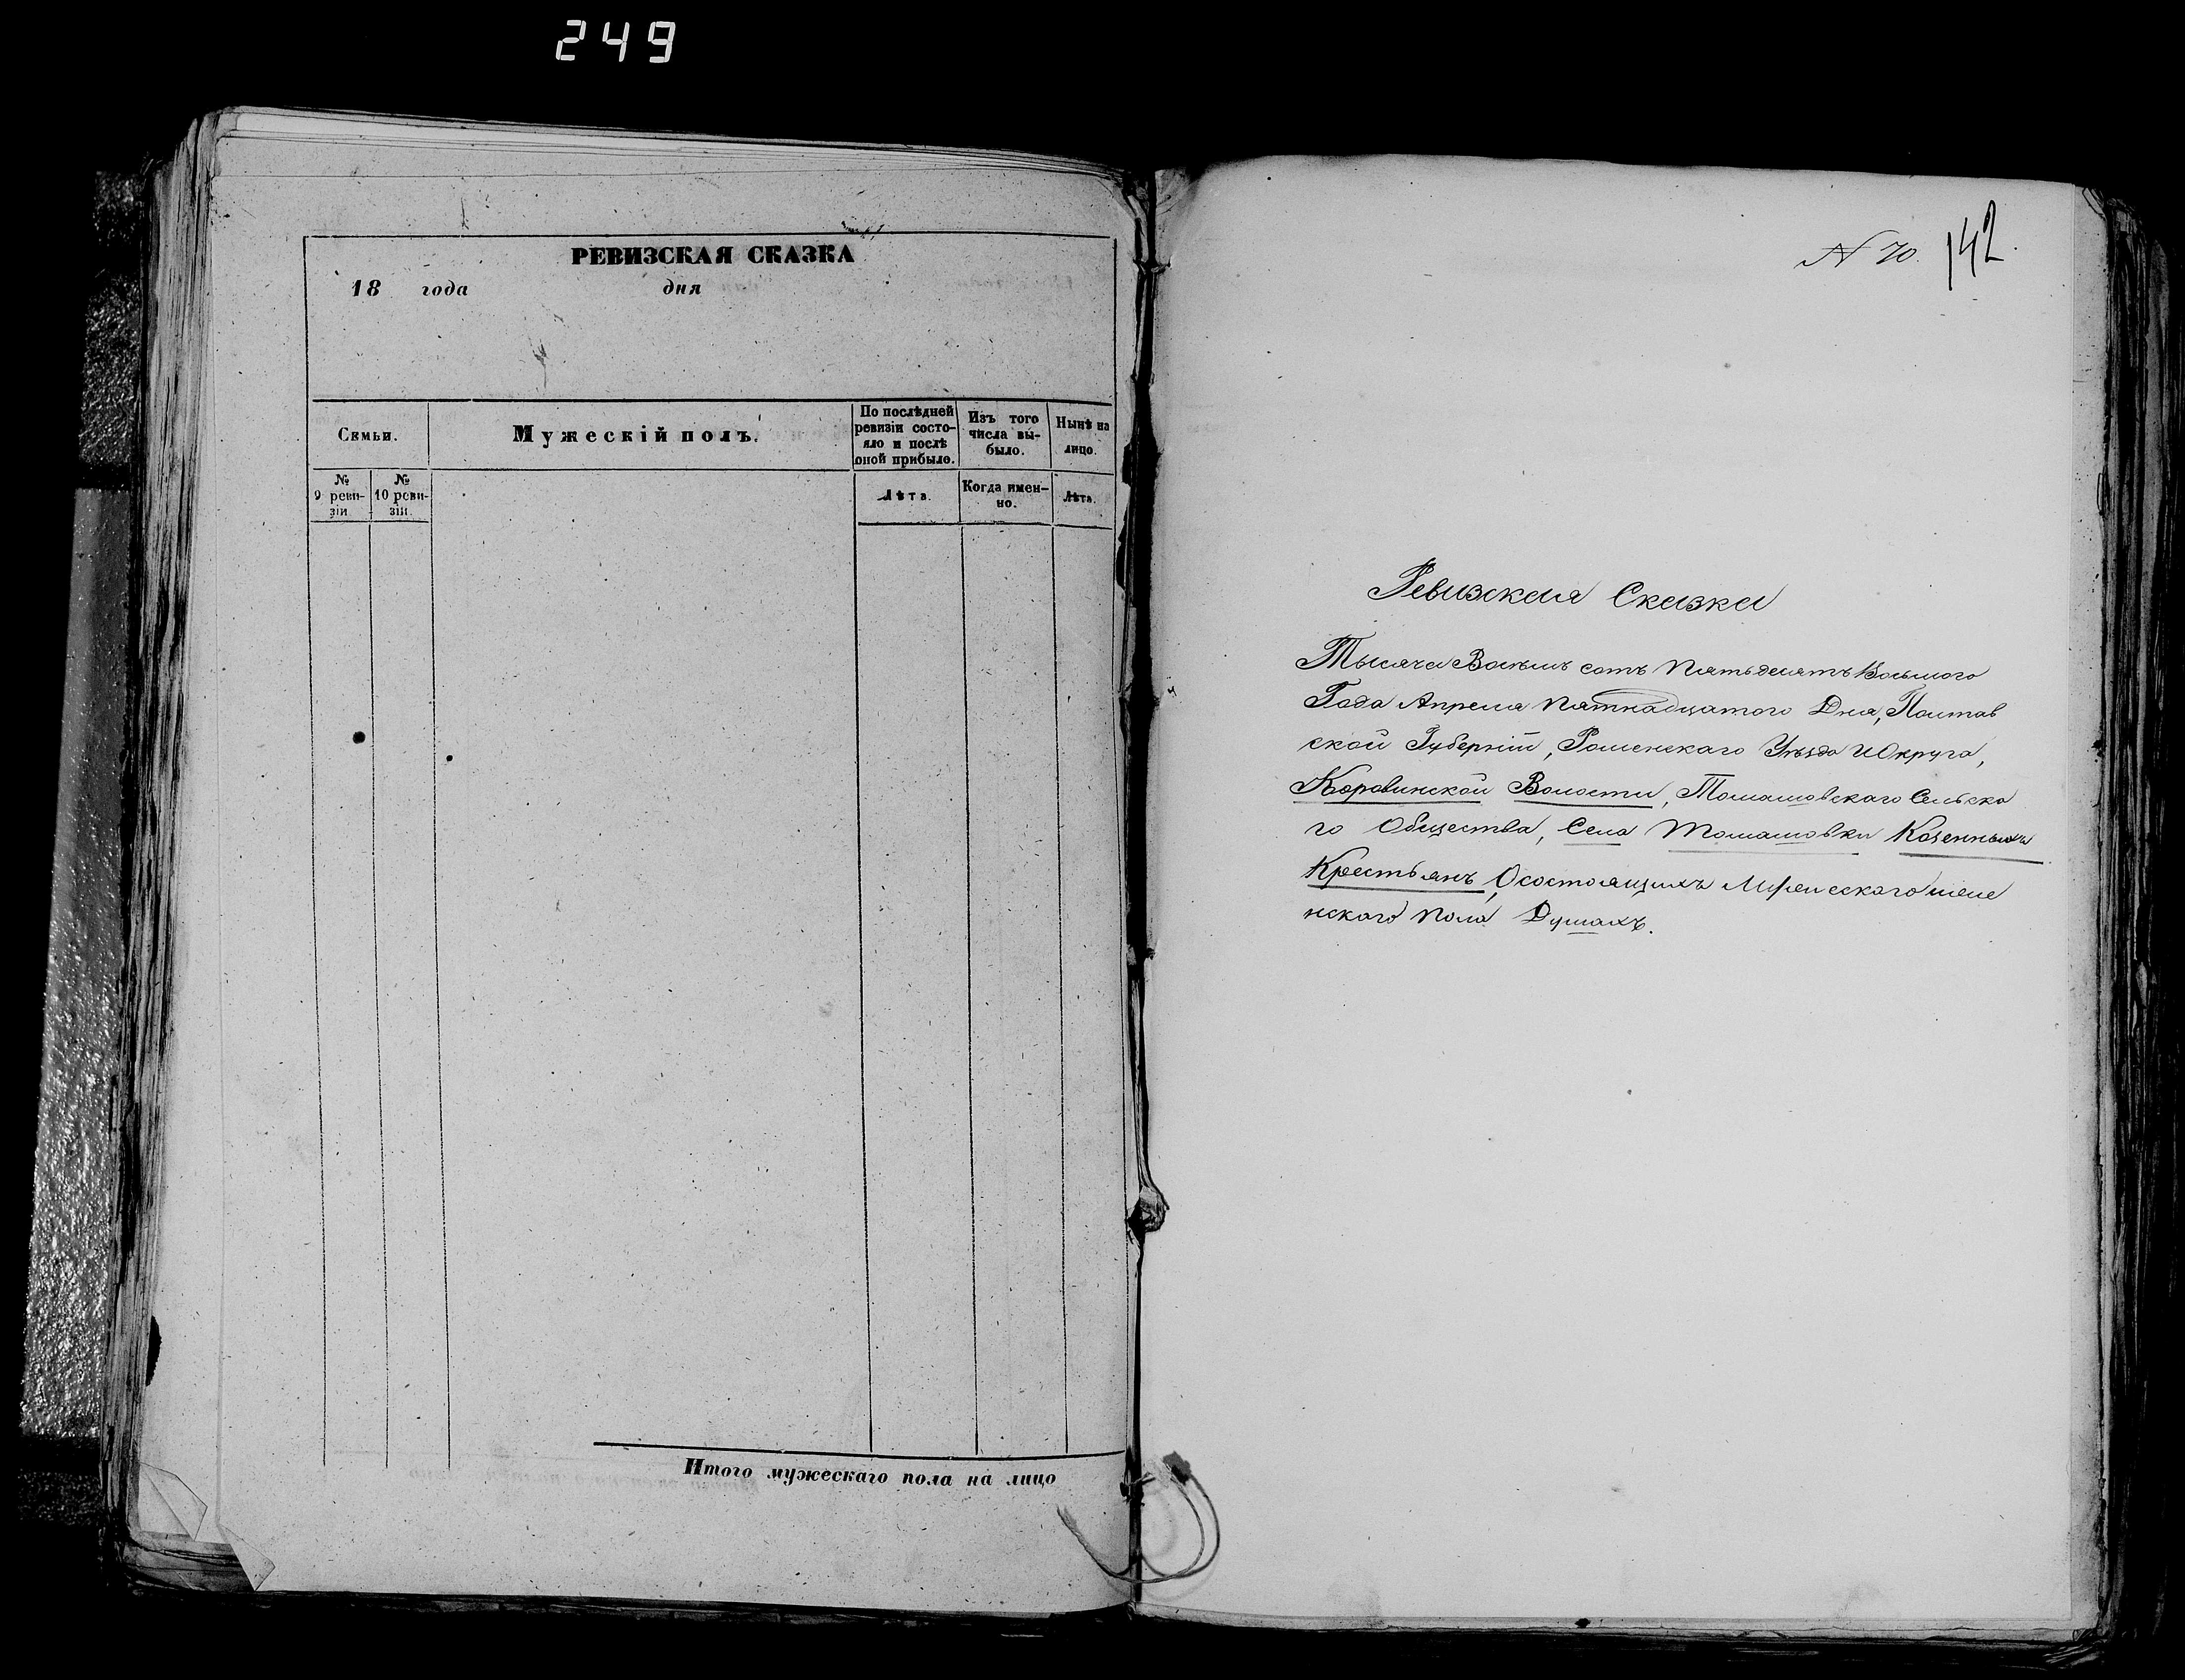 249
РЕВИЗСКАЯ СКАЗКА
18 года дня
Семьи.
Мужескій полъ.
По послѣдней ревизіи состо-
яло и послѣ
оной прибыло.
Изъ того
числа вы-
было.
Нынѣ на
лицо.
№
9 реви-
зіи
№
10 реви-
зіи.
Лѣта.
Когда имен-
но.
Лѣта.
Итого мужескаго пола на лицо
N 70. 142.
Ревизская Сказка
Тысяча Восемь сотъ Пятьдесятъ Восьмого
Года Апреля Пятнадцатого Дня, Полтав
ской Губерніи, Роменскаго Уѣзда и Округа,
Коровинской Волости, Томашовскаго Сельска
го Общества, Села Томашовки Казенныхъ
Крестьянъ, О состоящихъ Мужескаго и жене
нскаго Пола Душахъ.